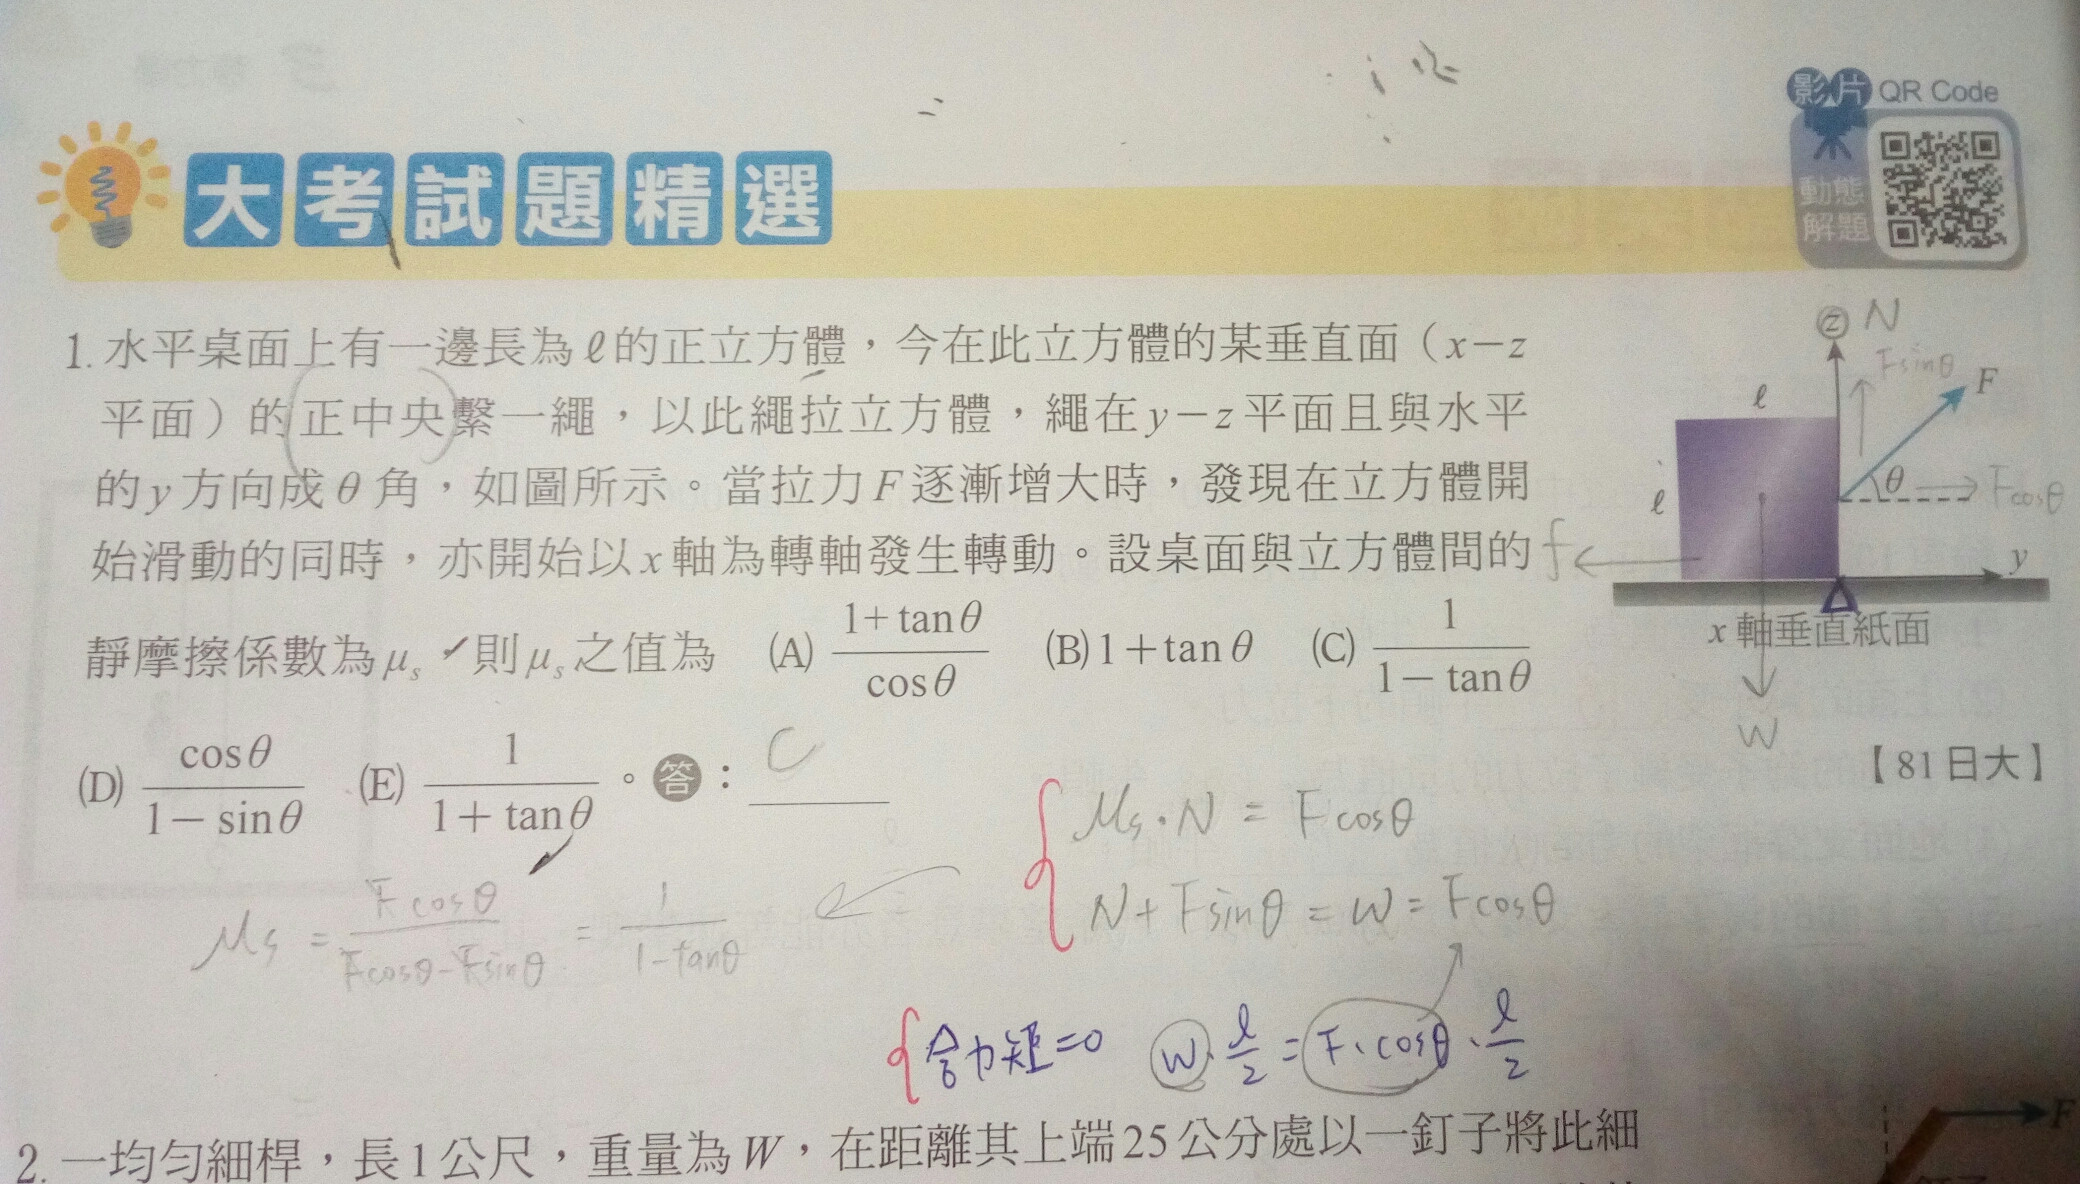 影片 QR Code
動態
解題
大考試題精選
1. 水平桌面上有一邊長為ℓ的正立方體，今在此立方體的某垂直面（x－z
平面）的正中央繫一繩，以此繩拉立方體，繩在y－z平面且與水平
的y方向成θ角，如圖所示。當拉力F逐漸增大時，發現在立方體開
始滑動的同時，亦開始以x軸為轉軸發生轉動。設桌面與立方體間的
靜摩擦係數為μs，則μs之值為 (A) (1+tanθ)/cosθ (B) 1+tanθ (C) 1/(1−tanθ)
(D) cosθ/(1−sinθ) (E) 1/(1+tanθ)。答：C
z N
Fsinθ
F
ℓ
ℓ
θ
Fcosθ
f
y
x軸垂直紙面
W
【81日大】
μs·N = Fcosθ
N+Fsinθ = W = Fcosθ
μs = Fcosθ/(Fcosθ-Fsinθ) = 1/(1-tanθ)
合力矩=0 W·ℓ/2 = F·cosθ·ℓ/2
2. 一均勻細桿，長1公尺，重量為W，在距離其上端25公分處以一釘子將此細
F